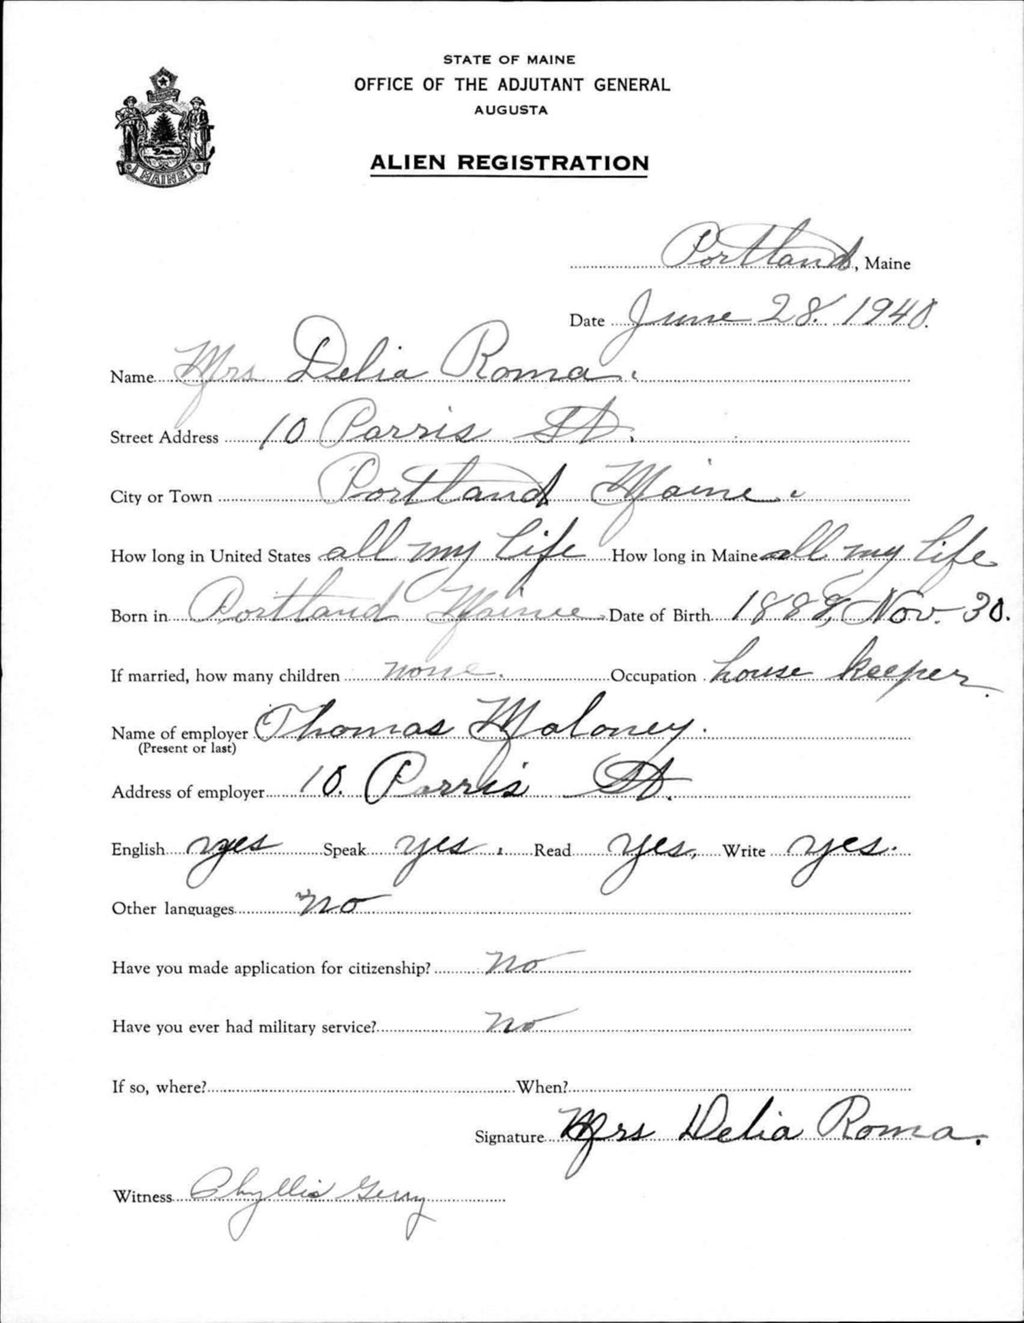 STATE OF MAINE
OFFICE OF THE ADJUTANT GENERAL
AUGUSTA
MAINE
ALIEN REGISTRATION
Portland, Maine
Date June 28. 1940.
Name Mrs Delia Roma.
Street Address 10 Parris St.
City or Town Portland Maine.
How long in United States all my life How long in Maine all my life
Born in Portland Maine. Date of Birth Nov. 30.
If married, how many children none. Occupation house keeper.
Name of employer Thomas Maloney.
(Present or last)
Address of employer 10. Parris St.
English yes Speak yes, Read yes, Write yes.
Other languages no
Have you made application for citizenship? No
Have you ever had military service? No
If so, where? When?
Signature Mrs Delia Roma.
Witness Phyllis Gerry